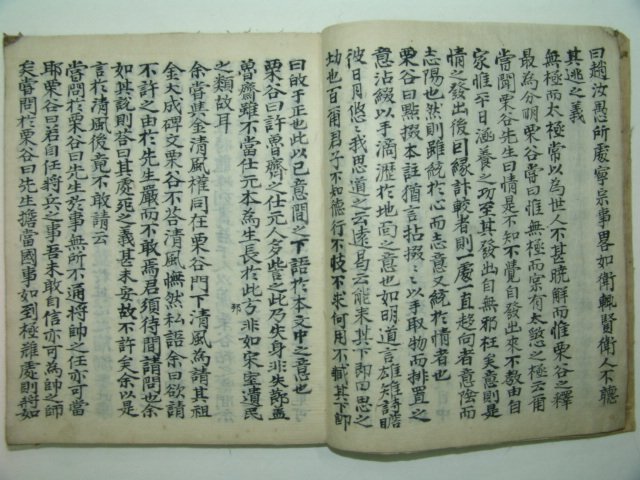 曰趙汝愚所處寧宗事畧如衛輒賢衛人不聽
其逃之義
無極而太極常以為世人不甚曉解而惟栗谷之釋
最為分明栗谷嘗曰惟無極而實有太極之極云爾
嘗聞栗谷先生曰情是不知不覺自發出來不教由自
家惟平日涵養之功至其發出自無邪枉矣意則是
情之發出後因緣計較者則一慮一直趨向者意陰而
志陽也然則雖統於心而志意又統於情者也
栗谷曰點掇本註猶言拈掇々以手取物而排置之
意沾綴以手滴瀝於地間之意也如明道言雄雉詩瞻
彼日月悠々我思道之云遠曷云能來其下即曰思之
切也百爾君子不知德行不忮不求何用不臧其下即
曰故于正也此以己意間之下語於本文中之意也
栗谷曰許魯齋之仕元人多訾之此乃失身非失節盖
魯齋雖不當仕元本為生長於此方非如宋室遺民
之類故耳
余嘗與金清風權同在栗谷門下清風為請其祖
金大成碑文栗谷不答清風憮然私語余曰欲請
不許之由於先生嚴而不敢焉君須待間請問也余
如其說則答曰其處死之義甚未妥故不許矣余以是
言於清風後竟不敢請云
嘗問於栗谷曰先生於事無所不通將帥之任亦可當
耶栗谷曰若自任將兵之事吾未敢自信亦可為帥之師
矣嘗問於栗谷曰先生擔當國事如到極難處則將如